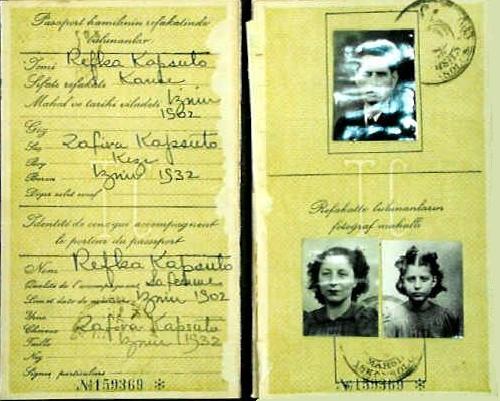 Pasaport hamilinin refakatinde
bulunanlar
İsmi Refka Kapsuto
Sıfatı refakati Karısı
Mahal ve tarihi vilâdeti İzmir
1902
Göz
Saç Zafira Kapsuto
Boy Kızı
Burun İzmir 1932
Identité de ceux qui accompagnent
le porteur du passeport
Nom Refka Kapsuto
Qualité de l'accompagnant sa femme
Lieu et date de naissance Izmir 1902
Yeux
Cheveux Zafira Kapsuto
Taille Izmir 1932
Nez
Signes particuliers
№159369 *
Refakatte bulunanların
fotoğraf mahalli
№159369 *